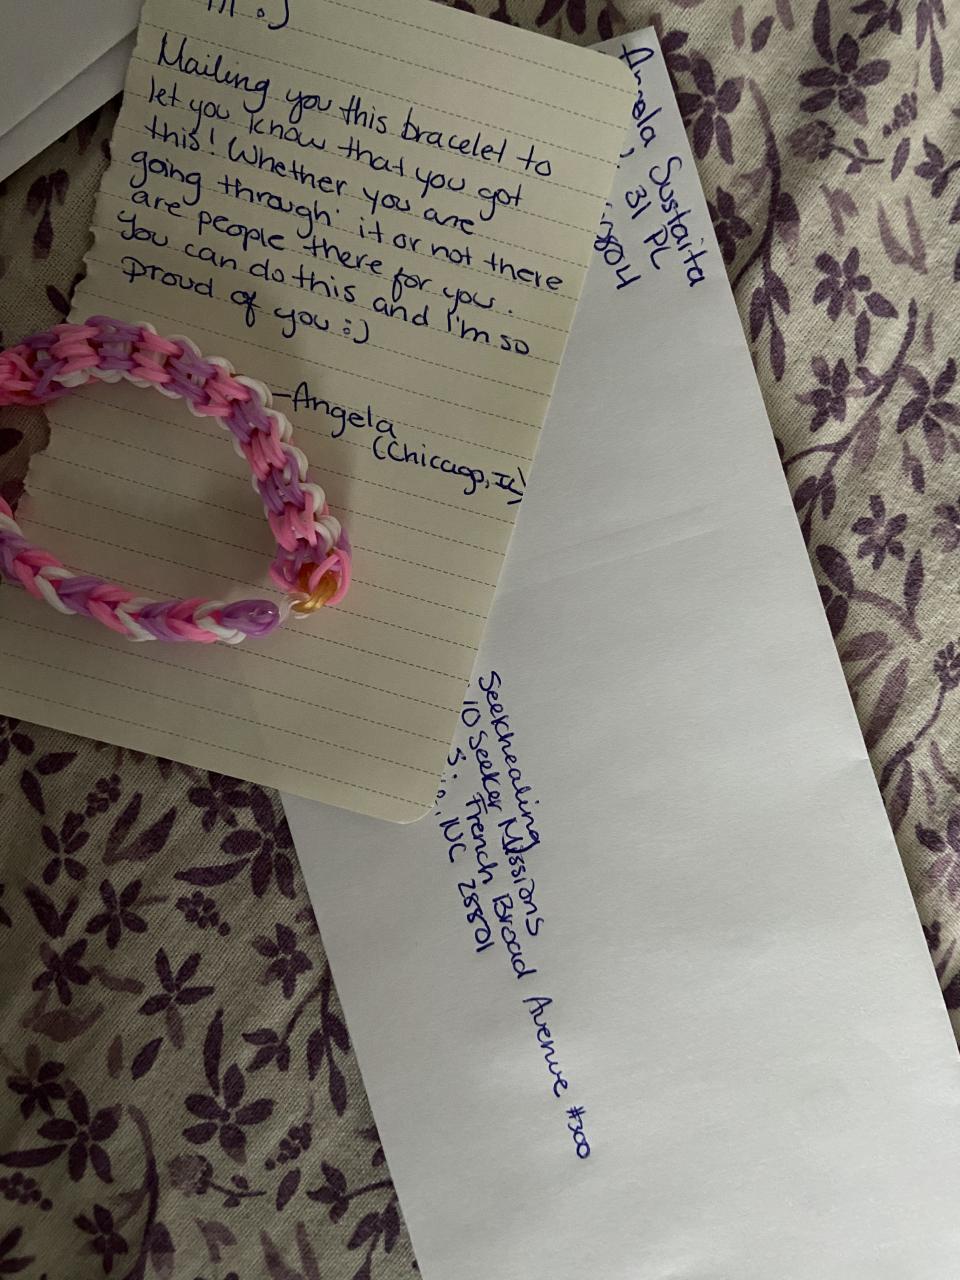 :)
Mailing you this bracelet to
let you know that you got
this! Whether you are
going through it or not there
are people there for you.
You can do this and I'm so
proud of you :)
-Angela
(Chicago, IL)
Angela Sustaita
31 PL
804
Seekhealing
10 Seeker Missions
S. French Broad Avenue #300
, NC 28801